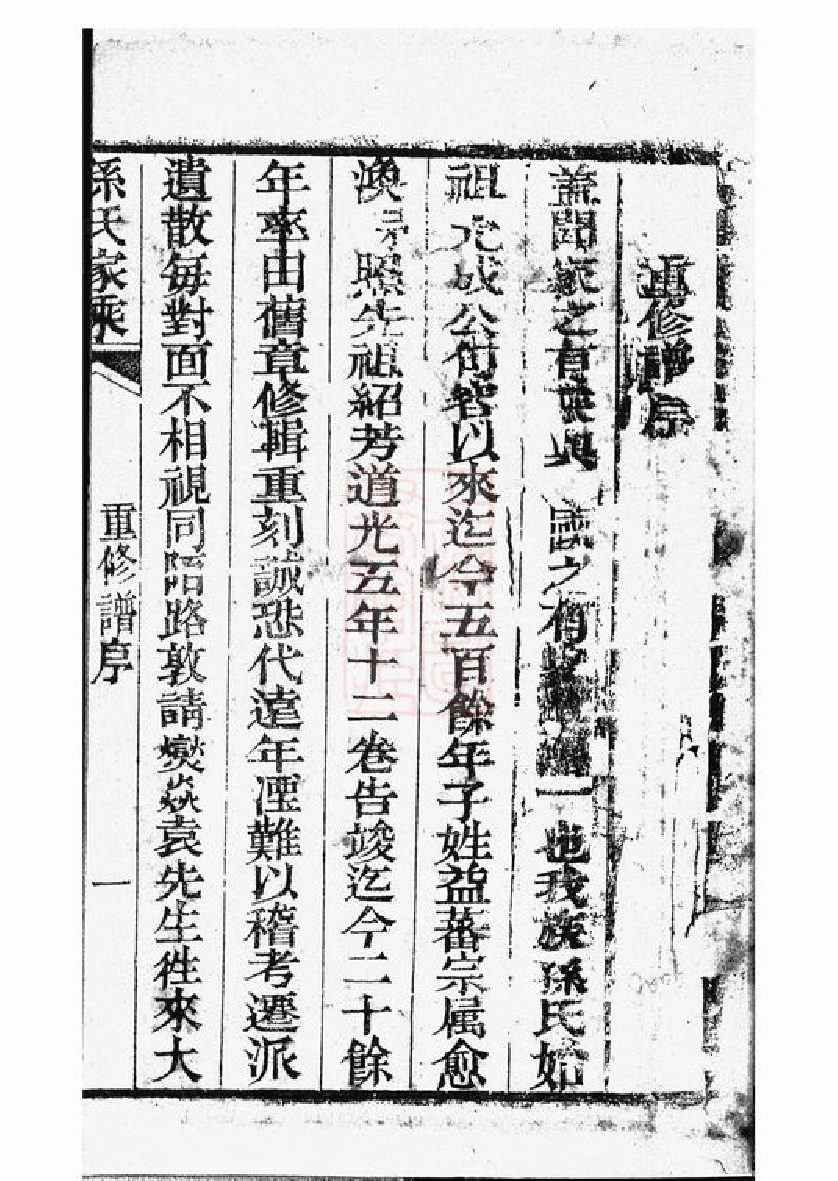 重修譜序
蓋聞家之有乘與國之有一也我族孫氏始
祖元成公句容以來迄今五百餘年子姓益蕃宗属愈
渙尋照先祖紹芳道光五年十二卷告竣迄今二十餘
年率由舊章修輯重刻誠恐代遠年湮難以稽考遷派
遺散每對面不相視同陌路敦請爕焱袁先生徃來大
孫氏家乘
重修譜序
一